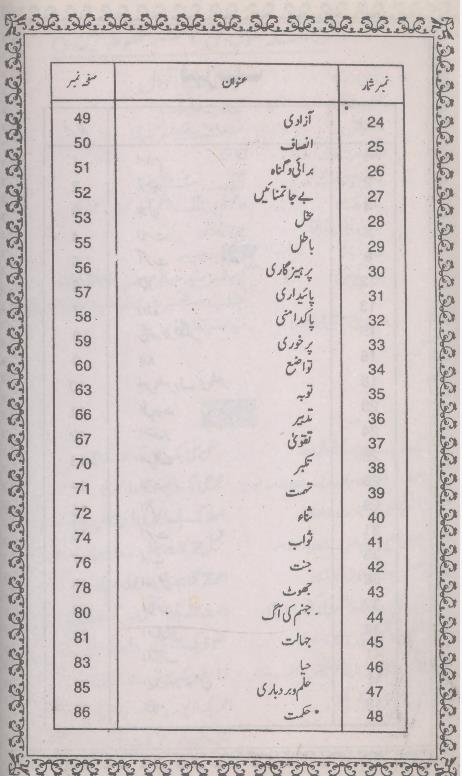 نمبر شمار عنوان صفحہ نمبر
24 آزادی 49
25 انصاف 50
26 برائی و گناہ 51
27 بے جا تمنائیں 52
28 بخل 53
29 باطل 55
30 پرہیزگاری 56
31 پائیداری 57
32 پاکدامنی 58
33 پرخوری 59
34 تواضع 60
35 توبہ 63
36 تدبیر 66
37 تقویٰ 67
38 تکبر 70
39 تہمت 71
40 ثناء 72
41 ثواب 74
42 جنت 76
43 جھوٹ 78
44 جہنم کی آگ 80
45 جہالت 81
46 حیا 83
47 حلم و بردباری 85
48 حکمت 86